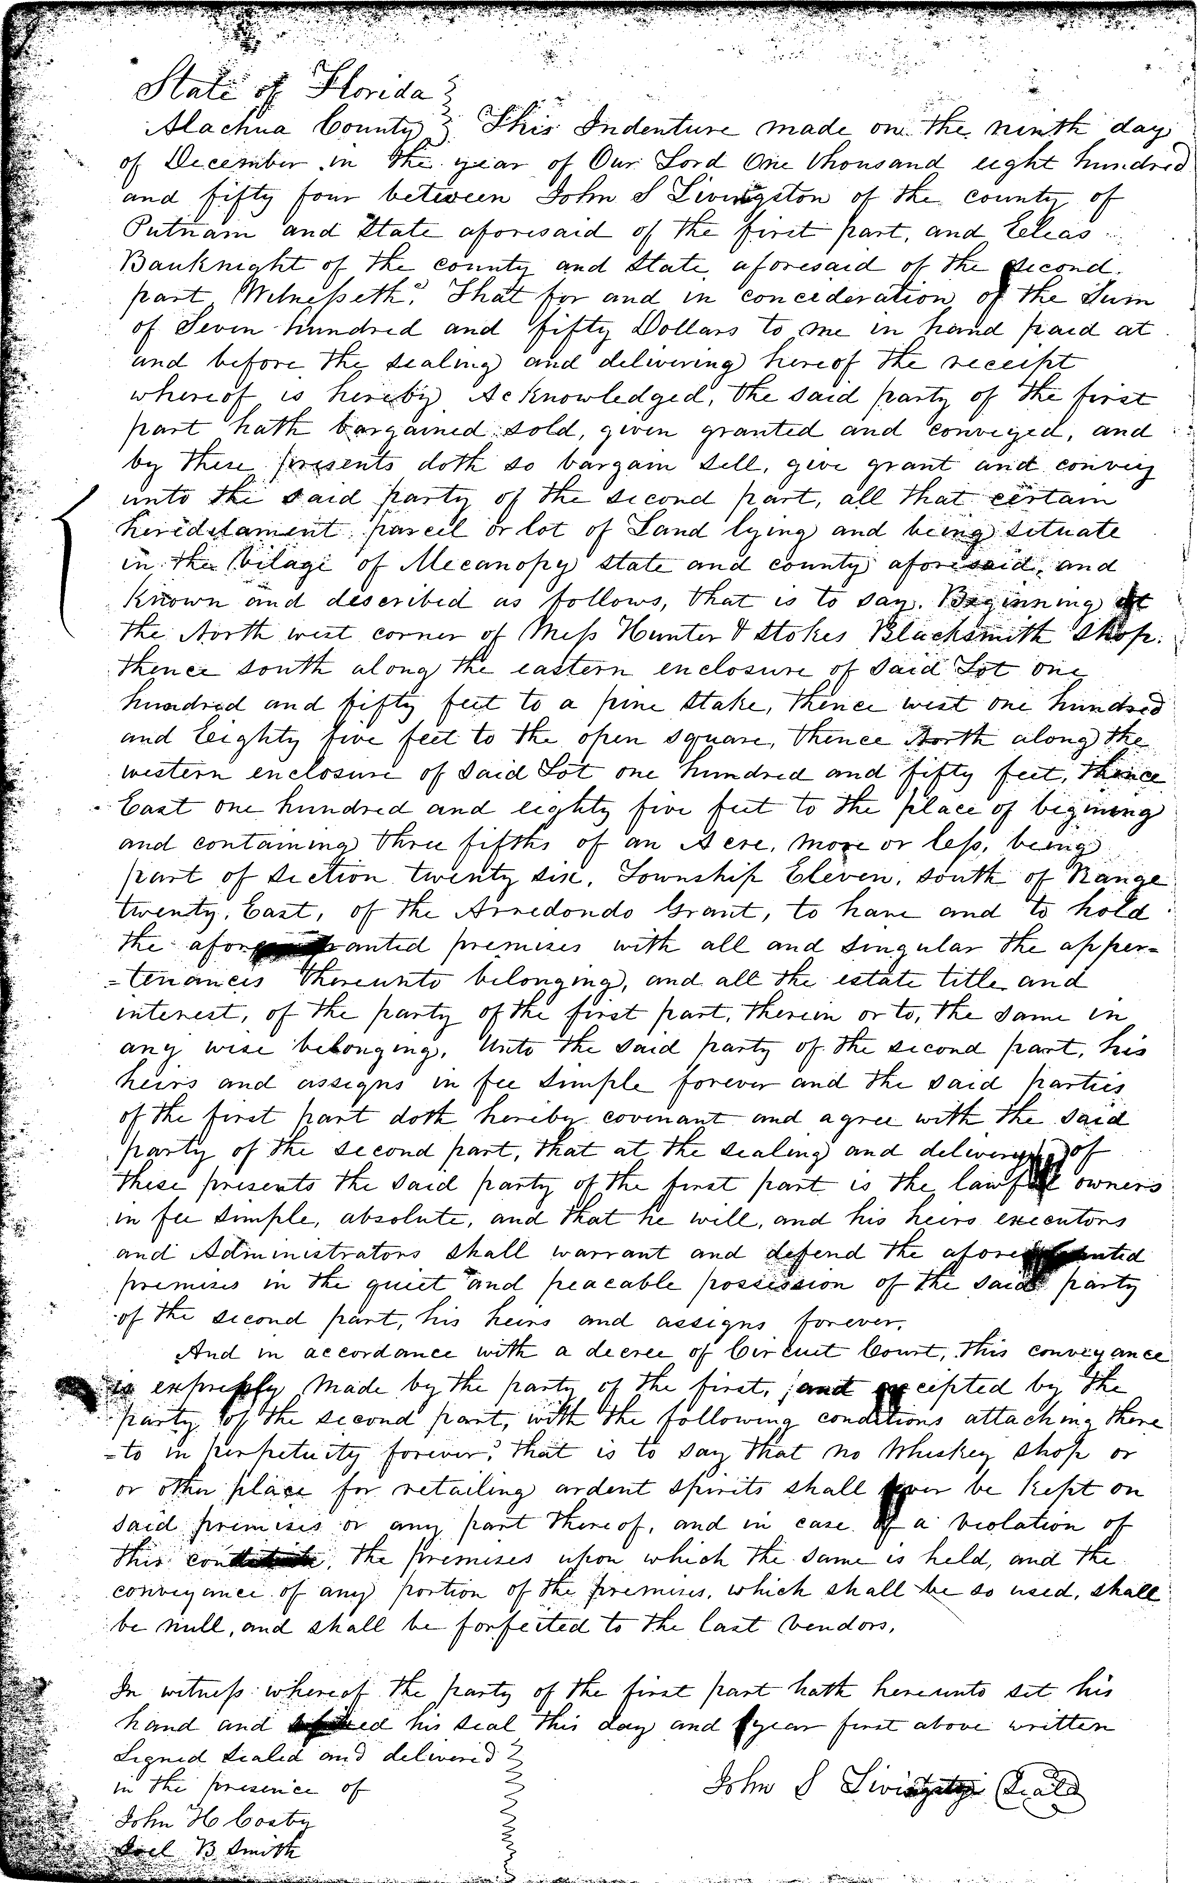 State of Florida
Alachua County This Indenture made on the ninth day
of December in the year of Our Lord One thousand eight hundred
and fifty four between John S Livingston of the county of
Putnam and State aforesaid of the first part, and Eleas
Bauknight of the county and State aforesaid of the second
part, Witnesseth, That for and in concideration of the Sum
of Seven hundred and fifty Dollars to me in hand paid at
and before the sealing and delivering hereof the receipt
whereof is hereby Acknowledged, the said party of the first
part hath bargained, sold, given granted and conveyed, and
by these presents doth so bargain sell, give grant and convey
unto the said party of the second part, all that certain
heridetament parcel or lot of Land lying and being situate
in the Vilage of Mecanopy state and county aforesaid, and
Known and described as follows, that is to say. Beginning at
the North west corner of Mess Hunter & Stokes Blacksmith Shop.
thence south along the eastern enclosure of said Lot one
hundred and fifty feet to a pine Stake, thence west one hundred
and Eighty five feet to the open square, thence North along the
western enclosure of said Lot one hundred and fifty feet, thence
East one hundred and eighty five feet to the place of begining
and containing three fifths of an Acre, more or less, being
part of Section twenty six, Township Eleven, south of Range
twenty, East, of the Arredondo Grant, to have and to hold
the afore granted premises with all and singular the apper=
=tenances thereunto belonging, and all the estate title and
interest, of the party of the first part, therein or to, the same in
any wise belonging, Unto the said party of the second part, his
heirs and assigns in fee simple forever and the said parties
of the first part doth hereby covenant and agree with the said
party of the second part, that at the sealing and delivery of
these presents the said party of the first part is the lawful owners
in fee simple, absolute, and that he will, and his heirs executors
and Administrators shall warrant and defend the afore granted
premises in the quiet and peacable possession of the said party
of the second part, his heirs and assigns forever.
And in accordance with a decree of Circuit Court, this conveyance
is expressly made by the party of the first, and accepted by the
party of the second part, with the following conditions attaching there
=to in perpetuity forever; that is to say that no Whiskey shop or
or other place for retailing ardent spirits shall ever be kept on
said premises or any part thereof, and in case of a violation of
this condition, the premises upon which the same is held, and the
conveyance of any portion of the premises, which shall be so used, shall
be null, and shall be forfeited to the last vendors.
In witness whereof the party of the first part hath hereunto set his
hand and affixed his seal this day and year first above written
Signed sealed and delivered
in the presence of
John S Livingston (Seal)
John H Cosby
Joel B Smith